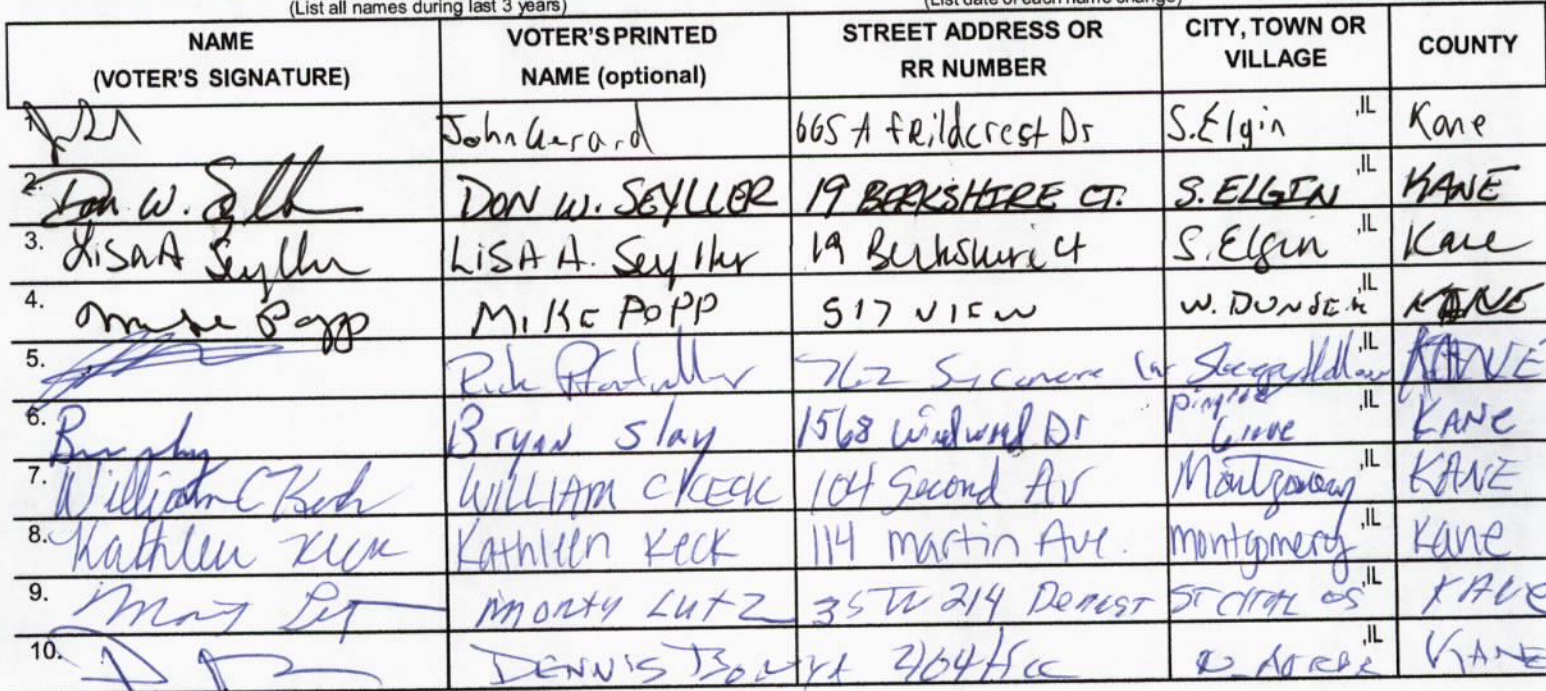 (List all names during last 3 years) (List date of each name change)
NAME (VOTER'S SIGNATURE) VOTER'S PRINTED NAME (optional) STREET ADDRESS OR RR NUMBER CITY, TOWN OR VILLAGE COUNTY
1. John Gerard 665 A Dr S. Elgin ,IL Kane
2. Don W. DON W. SEYLLER 19 BERKSHIRE CT. S. ELGIN ,IL KANE
3. Lisa A Seyller LISA A. Seyller 19 Berkshire Ct S. Elgin ,IL Kane
4. Mike Popp MIKE POPP 517 VIEW W. ,IL KANE
5. Rick 762 Sycamore Ln Sleepy Hollow ,IL KANE
6. Bryan Slay 1568 Dr Pingree Grove ,IL KANE
7. William C Keck WILLIAM C KECK 104 Second Av Montgomery ,IL KANE
8. Kathleen Keck Kathleen Keck 114 martin Ave. montgomery ,IL Kane
9. Monty Lutz 214 ST ,IL KANE
10. DENNIS ,IL KANE